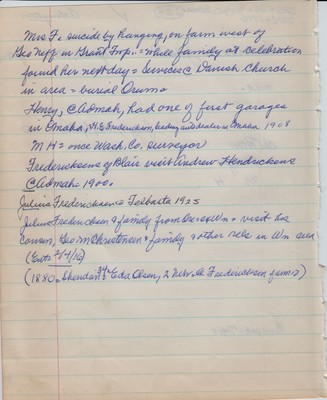 Mrs F. suicide by hanging, on farm west of
Geo Neff in Grant Twp. = while family at celebration
found her next day = Services @ Danish Church
in area = burial Orum
Henry, Admah, had one of first garages
in Omaha, H.E. Frederickson, leading auto dealer in Omaha 1908
M H = once Wash. Co. surveyor
Fredericksens of Blair visit Andrew Hendricksens
Admah = 1900.
Julius Fredericksen = Telbasta 1925
Julius Fredericksen & family from Wn = visit his
cousin, Geo. M Christensen & family & other rels in Wn area
(Ent. 2/4/16)
(1880. Sheridan 34 = Eda Olsen, 2 Nels H Fredericksen farms)